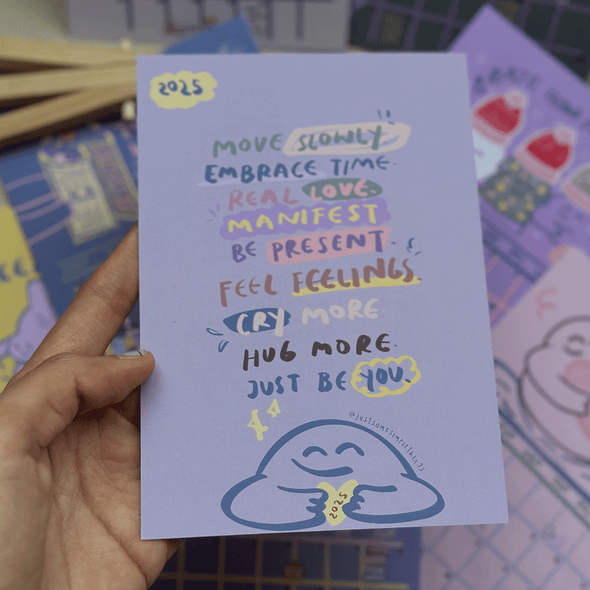 2025
MOVE SLOWLY
EMBRACE TIME.
REAL LOVE.
MANIFEST
BE PRESENT.
FEEL FEELINGS.
CRY MORE
HUG MORE.
JUST BE YOU.
@JUSTSOMESIMPLETHINGS
2025